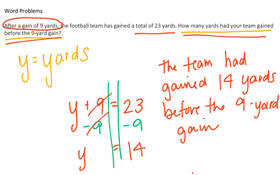 Word Problems
After a gain of 9 yards, the football team has gained a total of 23 yards. How many yards had your team gained
before the 9-yard gain?
y = yards
y + 9 = 23
- 9 - 9
y = 14
the team had
gained 14 yards
before the 9-yard
gain